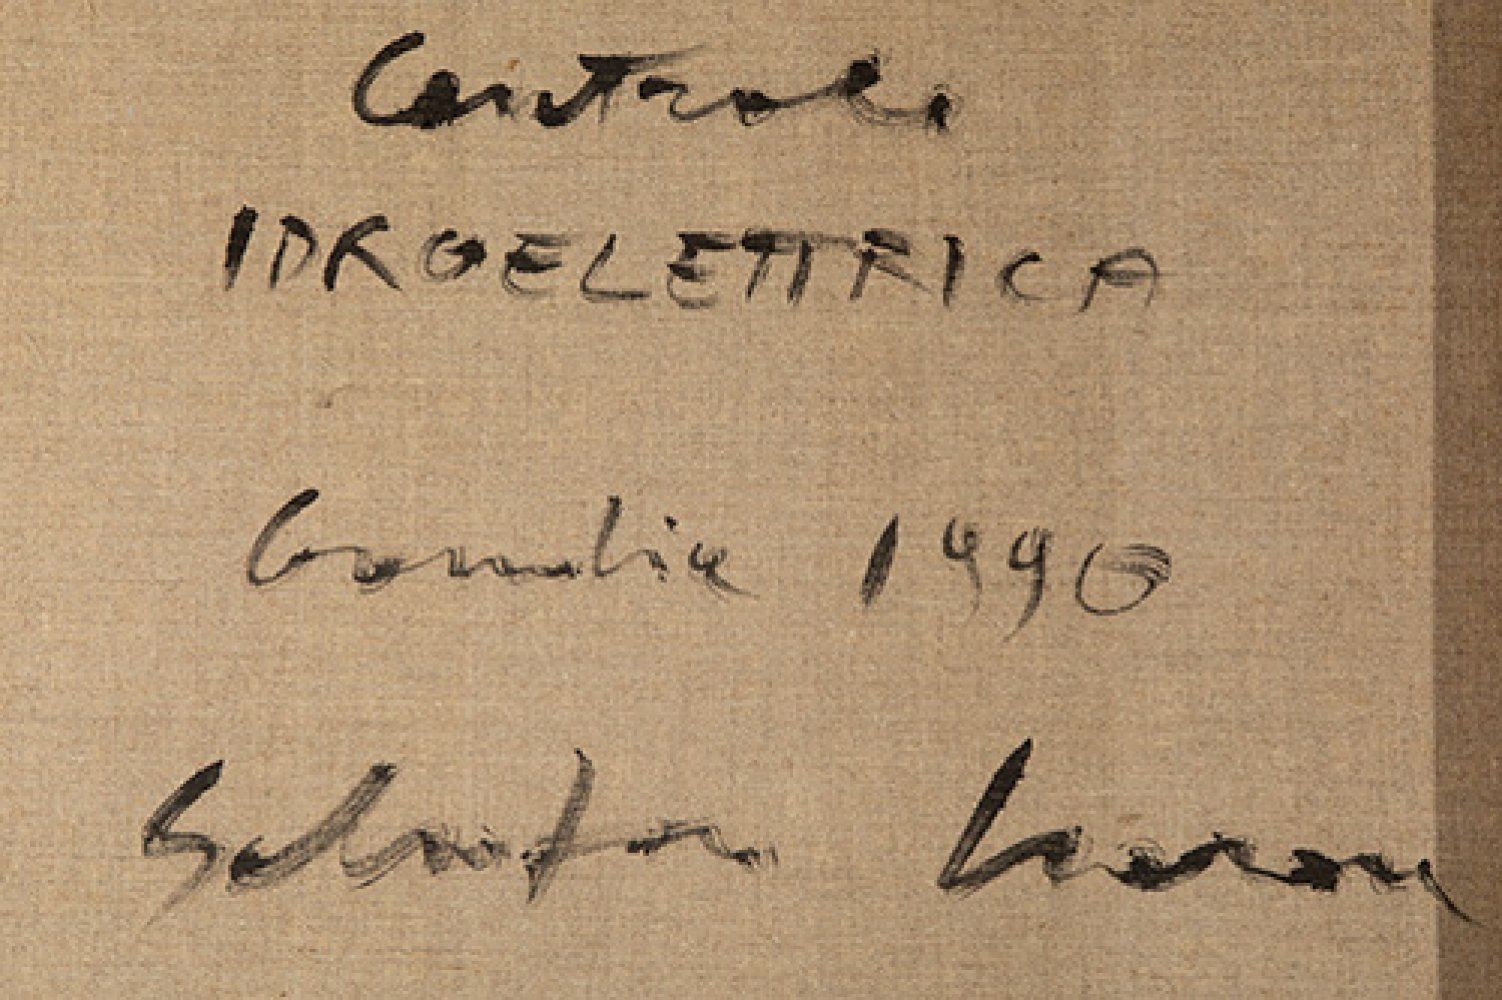 Centrale
IDROELETTRICA
1990
Salvatore